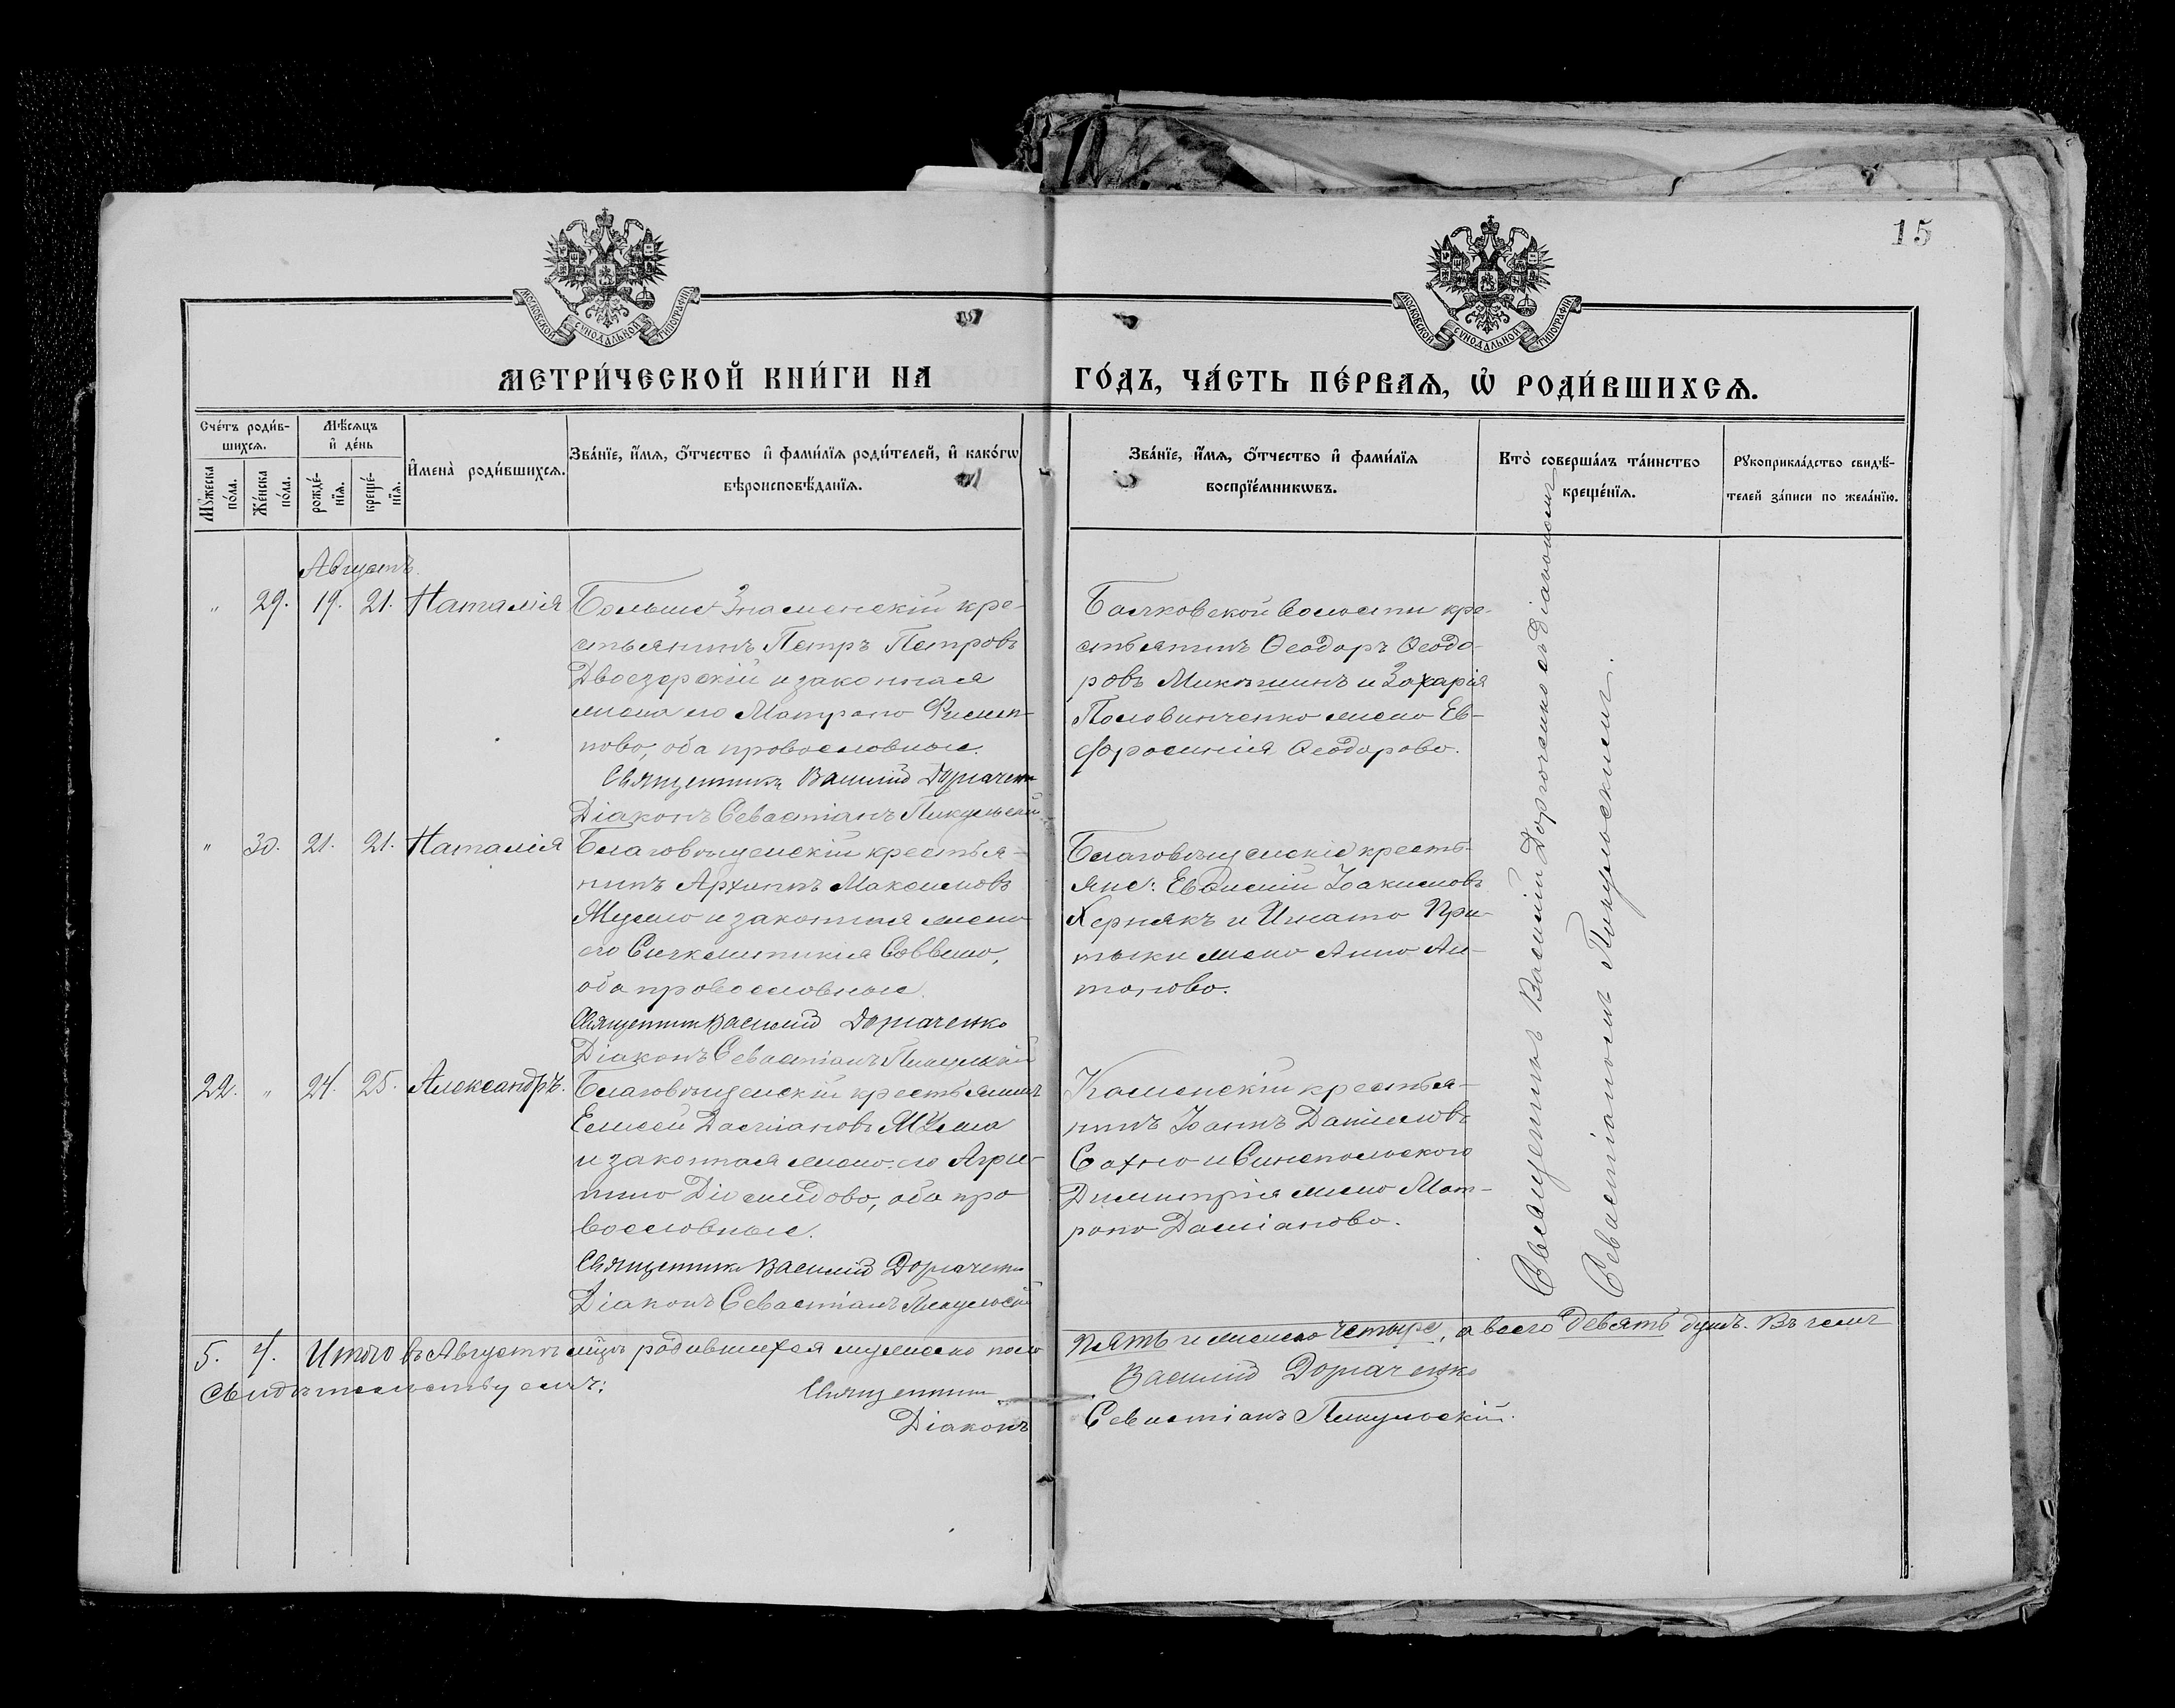 15
МОСКОВСКОЙ СУНОДАЛЬНОЙ ТИПОГРАФІИ
МОСКОВСКОЙ СУНОДАЛЬНОЙ ТИПОГРАФІИ
МЕТРИ́ЧЕСКОЙ КНИ́ГИ НА
ГО́ДЪ, ЧА́СТЬ ПЕ́РВАѦ, Ѡ҆ РОДИ́ВШИХСѦ.
Сче́тъ роди́в-
шихсѧ.
Мꙋ́жеска
по́ла.
Же́нска
по́ла.
Мѣ́сѧцъ
и҆ де́нь
рожде́-
нїѧ.
креще́-
нїѧ.
И҆мена̀ роди́вшихсѧ.
Зва́нїе, и҆́мѧ, ѻ҆́тчество и҆ фами́лїѧ роди́телей, и҆ како́гѡ
вѣроисповѣ́данїѧ.
Зва́нїе, и҆́мѧ, ѻ҆́тчество и҆ фами́лїѧ
воспрїе́мникѡвъ.
Кто̀ соверша́лъ та́инство
креще́нїѧ.
Рꙋкоприкла́дство свидѣ́-
телей за́писи по жела́нїю.
Августъ.
" 29. 19. 21. Наталія
Больше Знаменскій кре-
стьянинъ Петръ Петровъ
Двоезерскій и законная
жена его Матрона Филип-
пова, оба православные.
Священникъ Василій Дорпаченко
Діаконъ Севастіанъ Пикульскій
Балковской волости кре-
стьянинъ Ѳеодоръ Ѳеодо-
ровъ Микишинъ и Захарія
Половинченко жена Ев-
фросинія Ѳеодорова.
" 30. 21. 21. Наталія
Благовѣщенскій крестья-
нинъ Архиппъ Максимовъ
и законная жена
его Синклитикія Саввина,
оба православные.
Священникъ Василій Дорпаченко
Діаконъ Севастіанъ Пикульскій
Благовѣщенскіе кресть-
яне: Евѳимій Іоакимовъ
Черпякъ и Игната При-
тыки жена Анна Ан-
тонова.
22. " 24. 25. Александръ.
Благовѣщенскій крестьянинъ
Елисей Даміановъ
и законная жена его Агри-
пина Діомидова, оба пра-
вославные.
Священникъ Василій Дорпаченко
Діаконъ Севастіанъ Пикульскій
Каменскій крестья-
нинъ Іоаннъ Даніиловъ
Сахно и Синепольского
Димитрія жена Мат-
рона Даміанова.
Священникъ Василій Дорпаченко съ діакономъ
Севастіаномъ Пикульскимъ.
5. 4. Итого въ Августѣ мцѣ родившихся мужеска пола
пять и женска четыре, а всего девять душъ. Въ чемъ
свидѣтельствуемъ:
Священникъ Василій Дорпаченко
Діаконъ Севастіанъ Пикульскій.